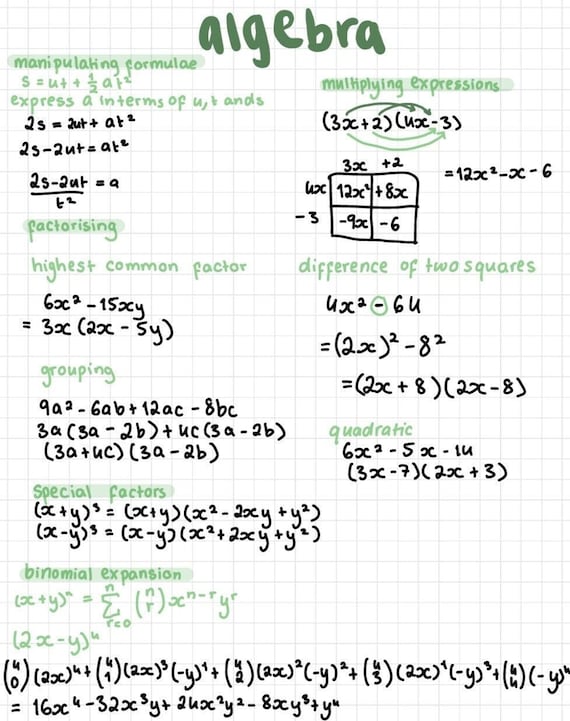 algebra
manipulating formulae
s = ut + ½ at²
express a in terms of u, t and s
2s = 2ut + at²
2s - 2ut = at²
2s - 2ut = a
t²
multiplying expressions
(3x + 2)(4x - 3)
3x +2
4x 12x² +8x
-3 -9x -6
= 12x² - x - 6
factorising
highest common factor
6x² - 15xy
= 3x (2x - 5y)
grouping
9a² - 6ab + 12ac - 8bc
3a (3a - 2b) + 4c (3a - 2b)
(3a + 4c) (3a - 2b)
difference of two squares
4x² - 64
= (2x)² - 8²
= (2x + 8)(2x - 8)
quadratic
6x² - 5x - 14
(3x - 7)(2x + 3)
special factors
(x + y)³ = (x + y)(x² - 2xy + y²)
(x - y)³ = (x - y)(x² + 2xy + y²)
binomial expansion
(x + y)ⁿ = n ∑ r=0 (n r) xⁿ⁻ʳ yʳ
(2x - y)⁴
(4 0)(2x)⁴ + (4 1)(2x)³(-y)¹ + (4 2)(2x)²(-y)² + (4 3)(2x)¹(-y)³ + (4 4)(-y)⁴
= 16x⁴ - 32x³y + 24x²y² - 8xy³ + y⁴